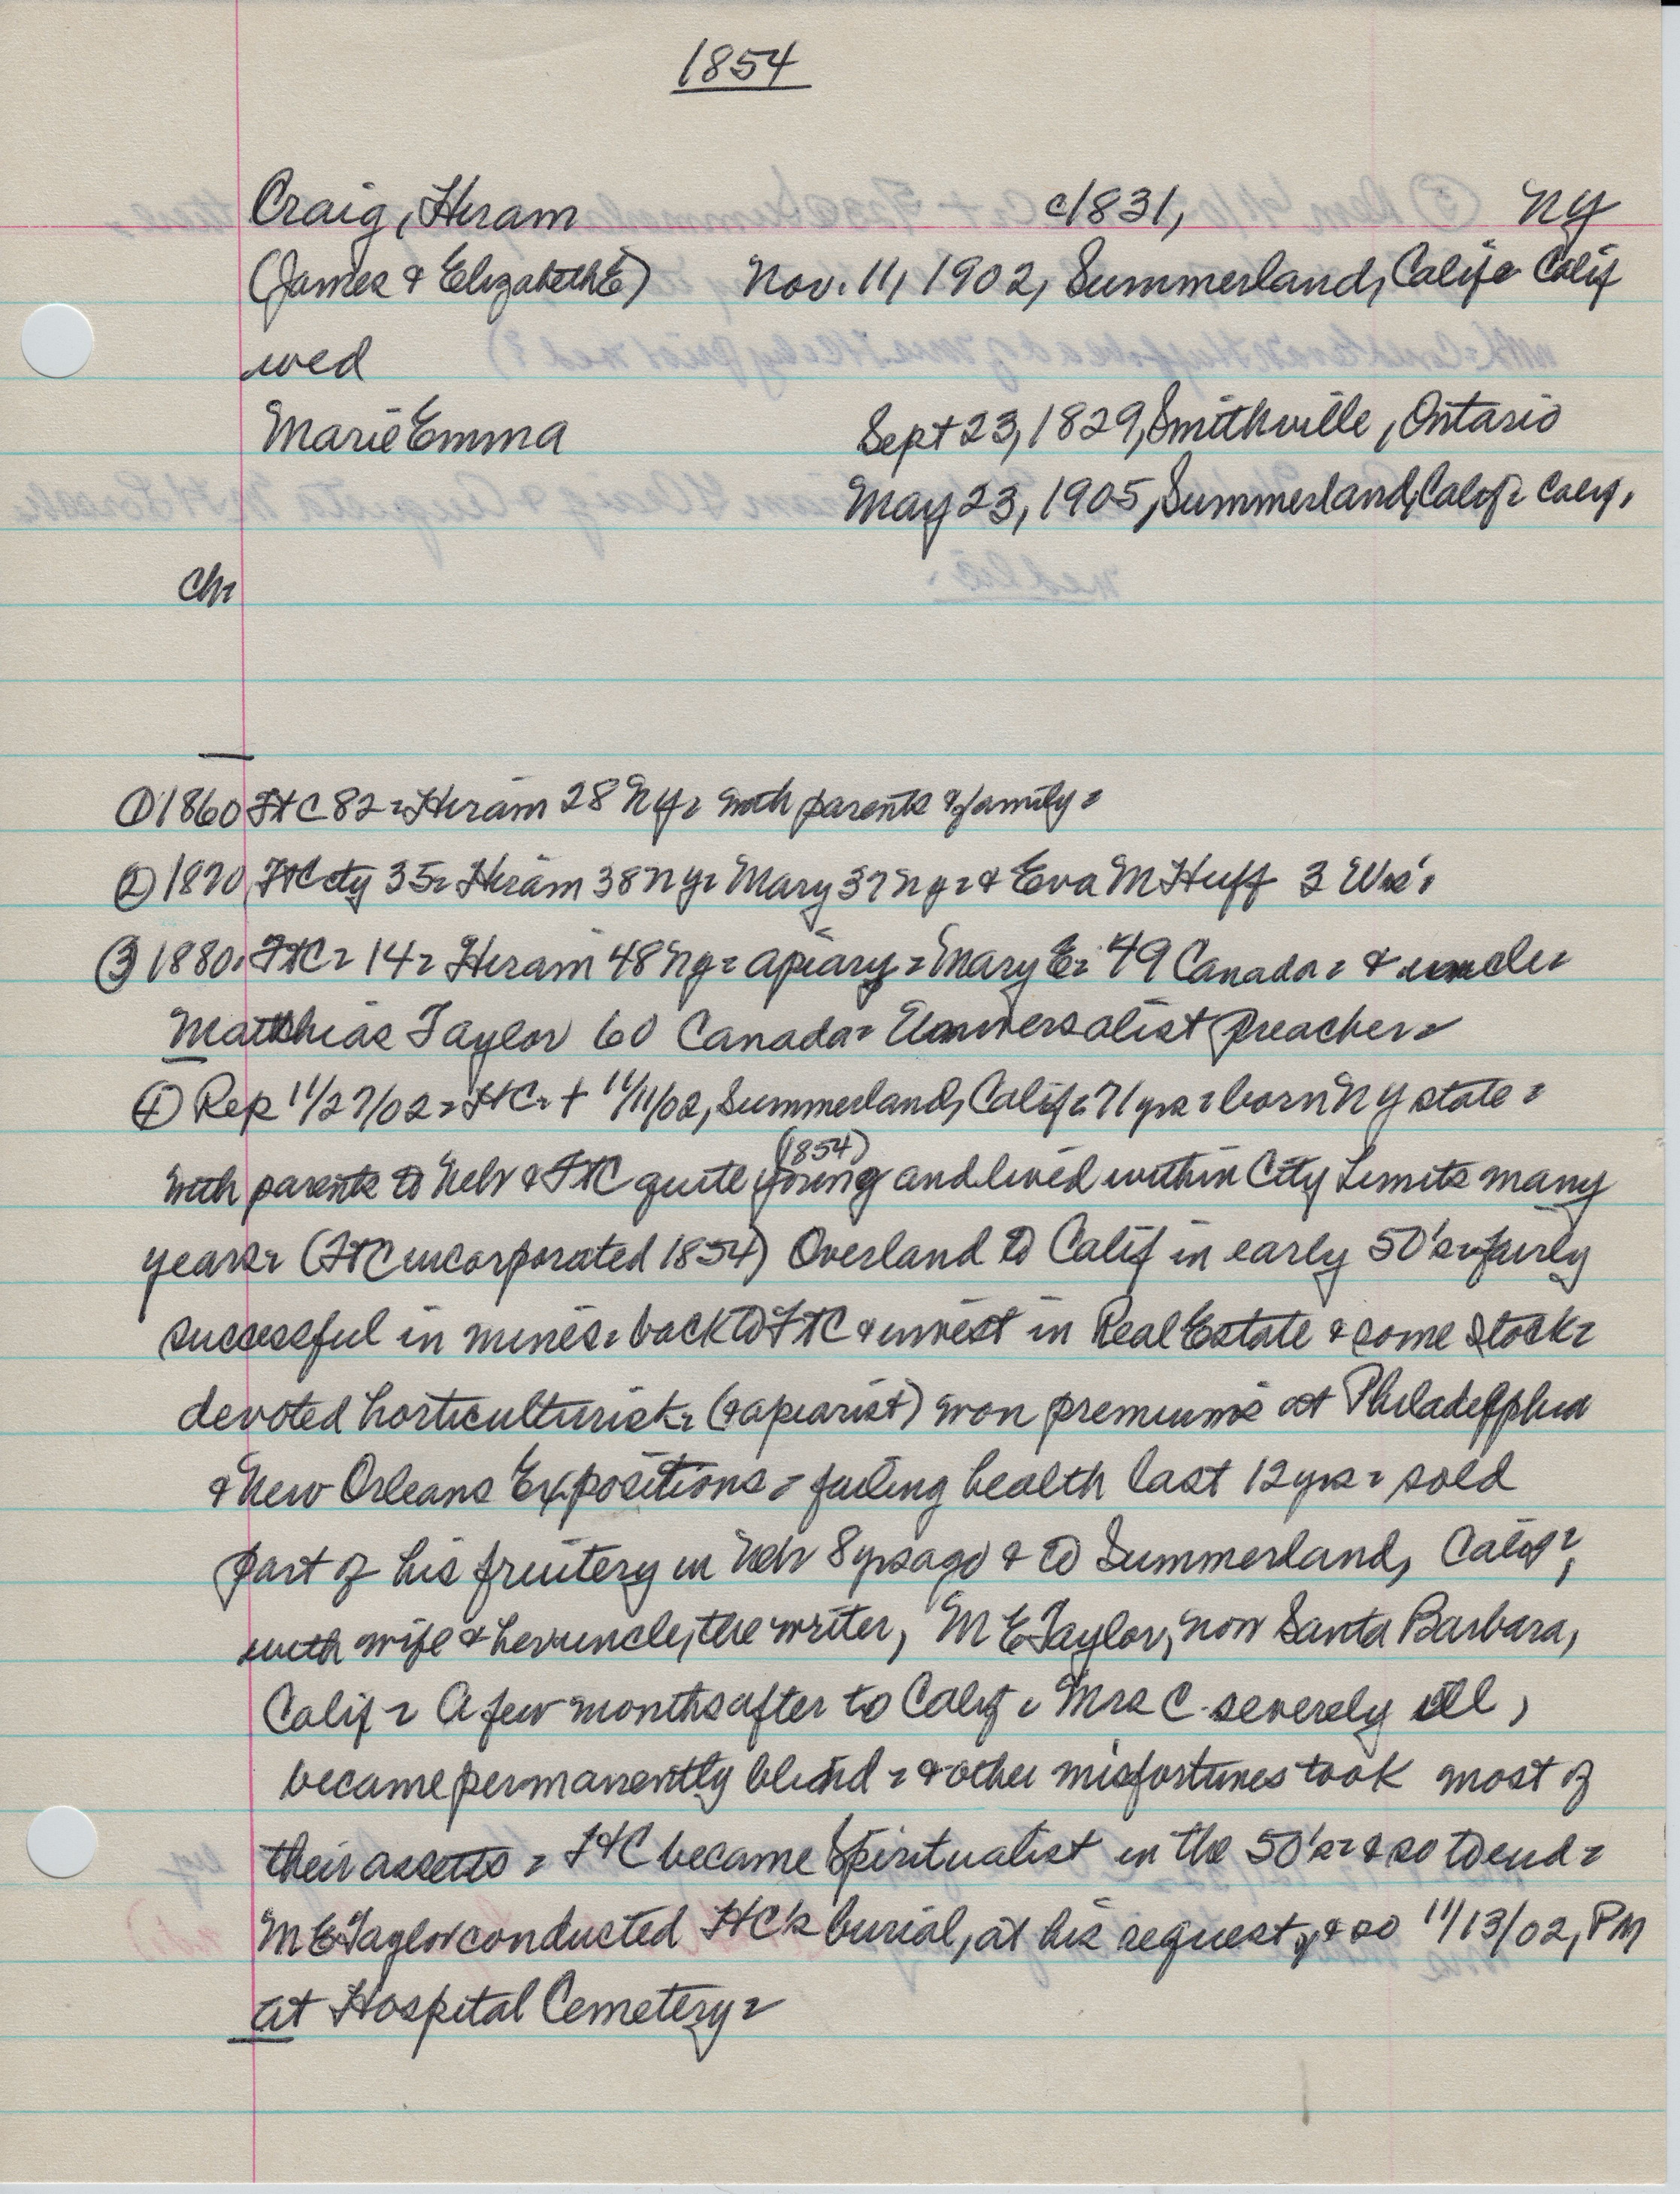 1854
Craig, Hiram c/831, NY
(James & Elizabeth E) Nov. 11, 1902, Summerland, Calif = Calif
wed
Marie Emma Sept 23, 1829, Smithville, Ontario
May 23, 1905, Summerland, Calif = Calif.
Ch:
① 1860 FtC 82 = Hiram 28 NY = with parents & family =
② 1870 FtC cty 35 = Hiram 38 NY = Mary 37 NY = & Eva M Huff 3 Wis.
③ 1880 = FtC = 14 = Hiram 48 NY = apiary = Mary E = 49 Canada = & uncle =
Matthias Taylor 60 Canada = Universalist Preacher =
④ Rep 11/27/02 = HC = + 11/11/02, Summerland, Calif = 71 yrs = born NY state =
(1854)
with parents to Neb & FtC quite young and lived within City Limits many
years = (FtC incorporated 1854) Overland to Calif in early 50's = fairly
successful in mines = back to FtC & invest in Real Estate & some Stock =
devoted horticulturist = (& apiarist) won premiums at Philadelphia
& New Orleans Expositions = failing health last 12 yrs = sold
part of his fruitery in Neb 8 yrs ago & to Summerland, Calif =,
with wife & her uncle, the writer, M E Taylor, now Santa Barbara,
Calif = A few months after to Calif = Mrs C. severely ill,
became permanently blind = & other misfortunes took most of
their assets = HC became Spiritualist in the 50's = & so to end =
M E Taylor conducted HC's burial, at his request, & so 11/13/02, PM
at Hospital Cemetery =